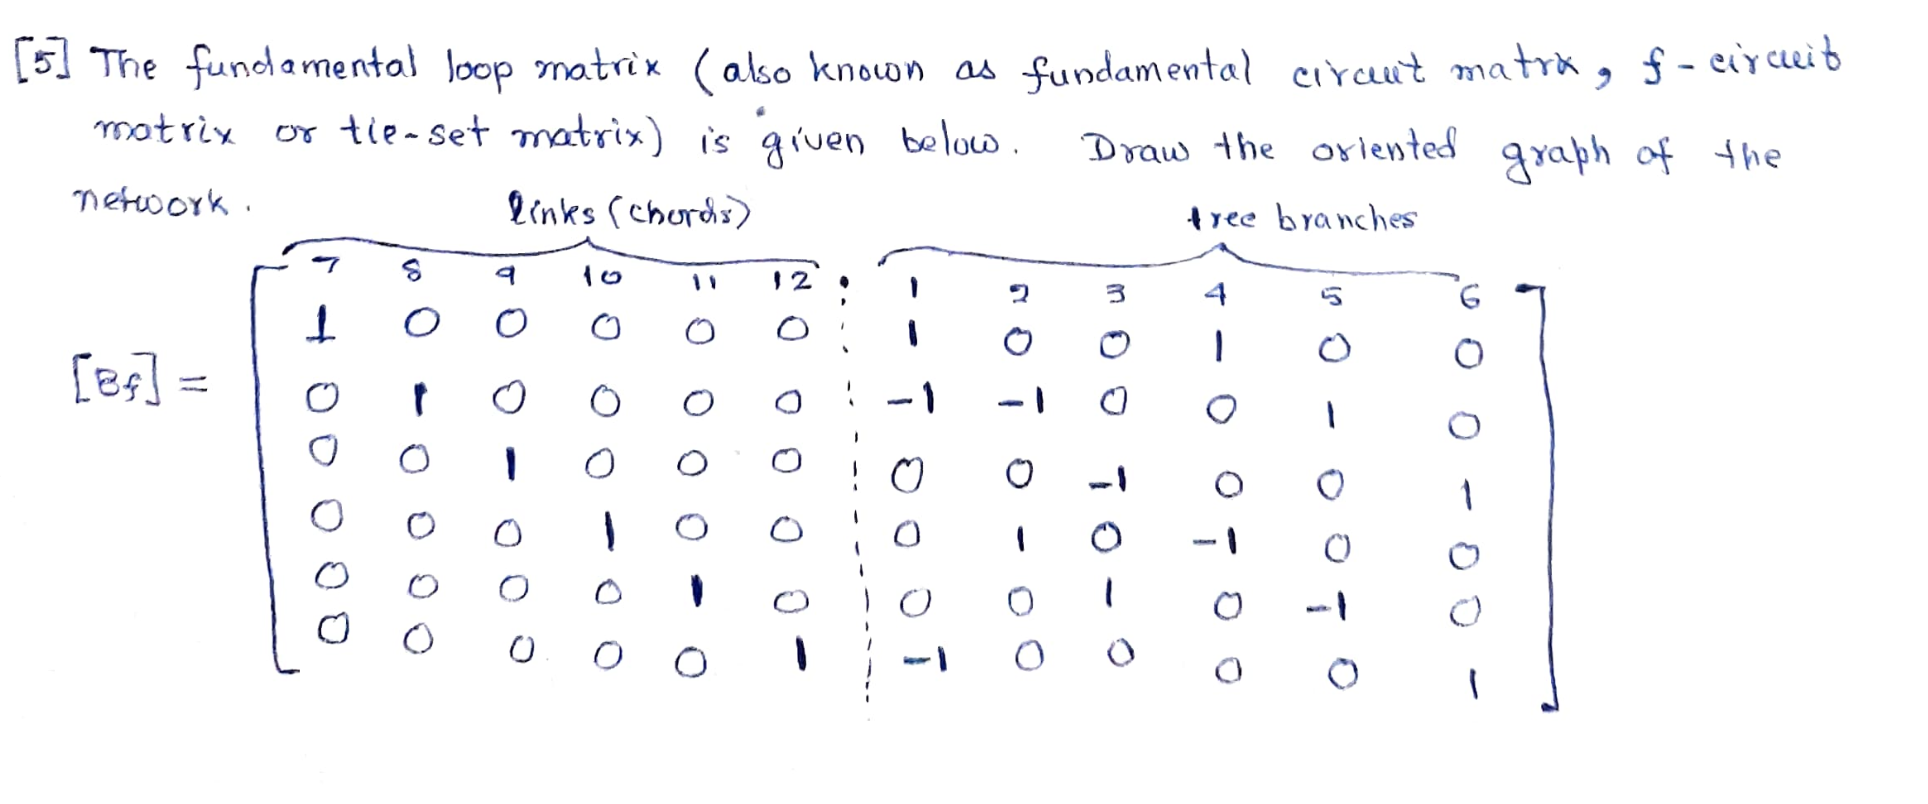 [5] The fundamental loop matrix (also known as fundamental circuit matrix, f-circuit
matrix or tie-set matrix) is given below. Draw the oriented graph of the
network.
links (chords) tree branches
7 8 9 10 11 12 : 1 2 3 4 5 6
1 0 0 0 0 0 1 0 0 1 0 0
[Bf] = 0 1 0 0 0 0 -1 -1 0 0 1 0
0 0 1 0 0 0 0 0 -1 0 0 1
0 0 0 1 0 0 0 1 0 -1 0 0
0 0 0 0 1 0 0 0 1 0 -1 0
0 0 0 0 0 1 -1 0 0 0 0 1